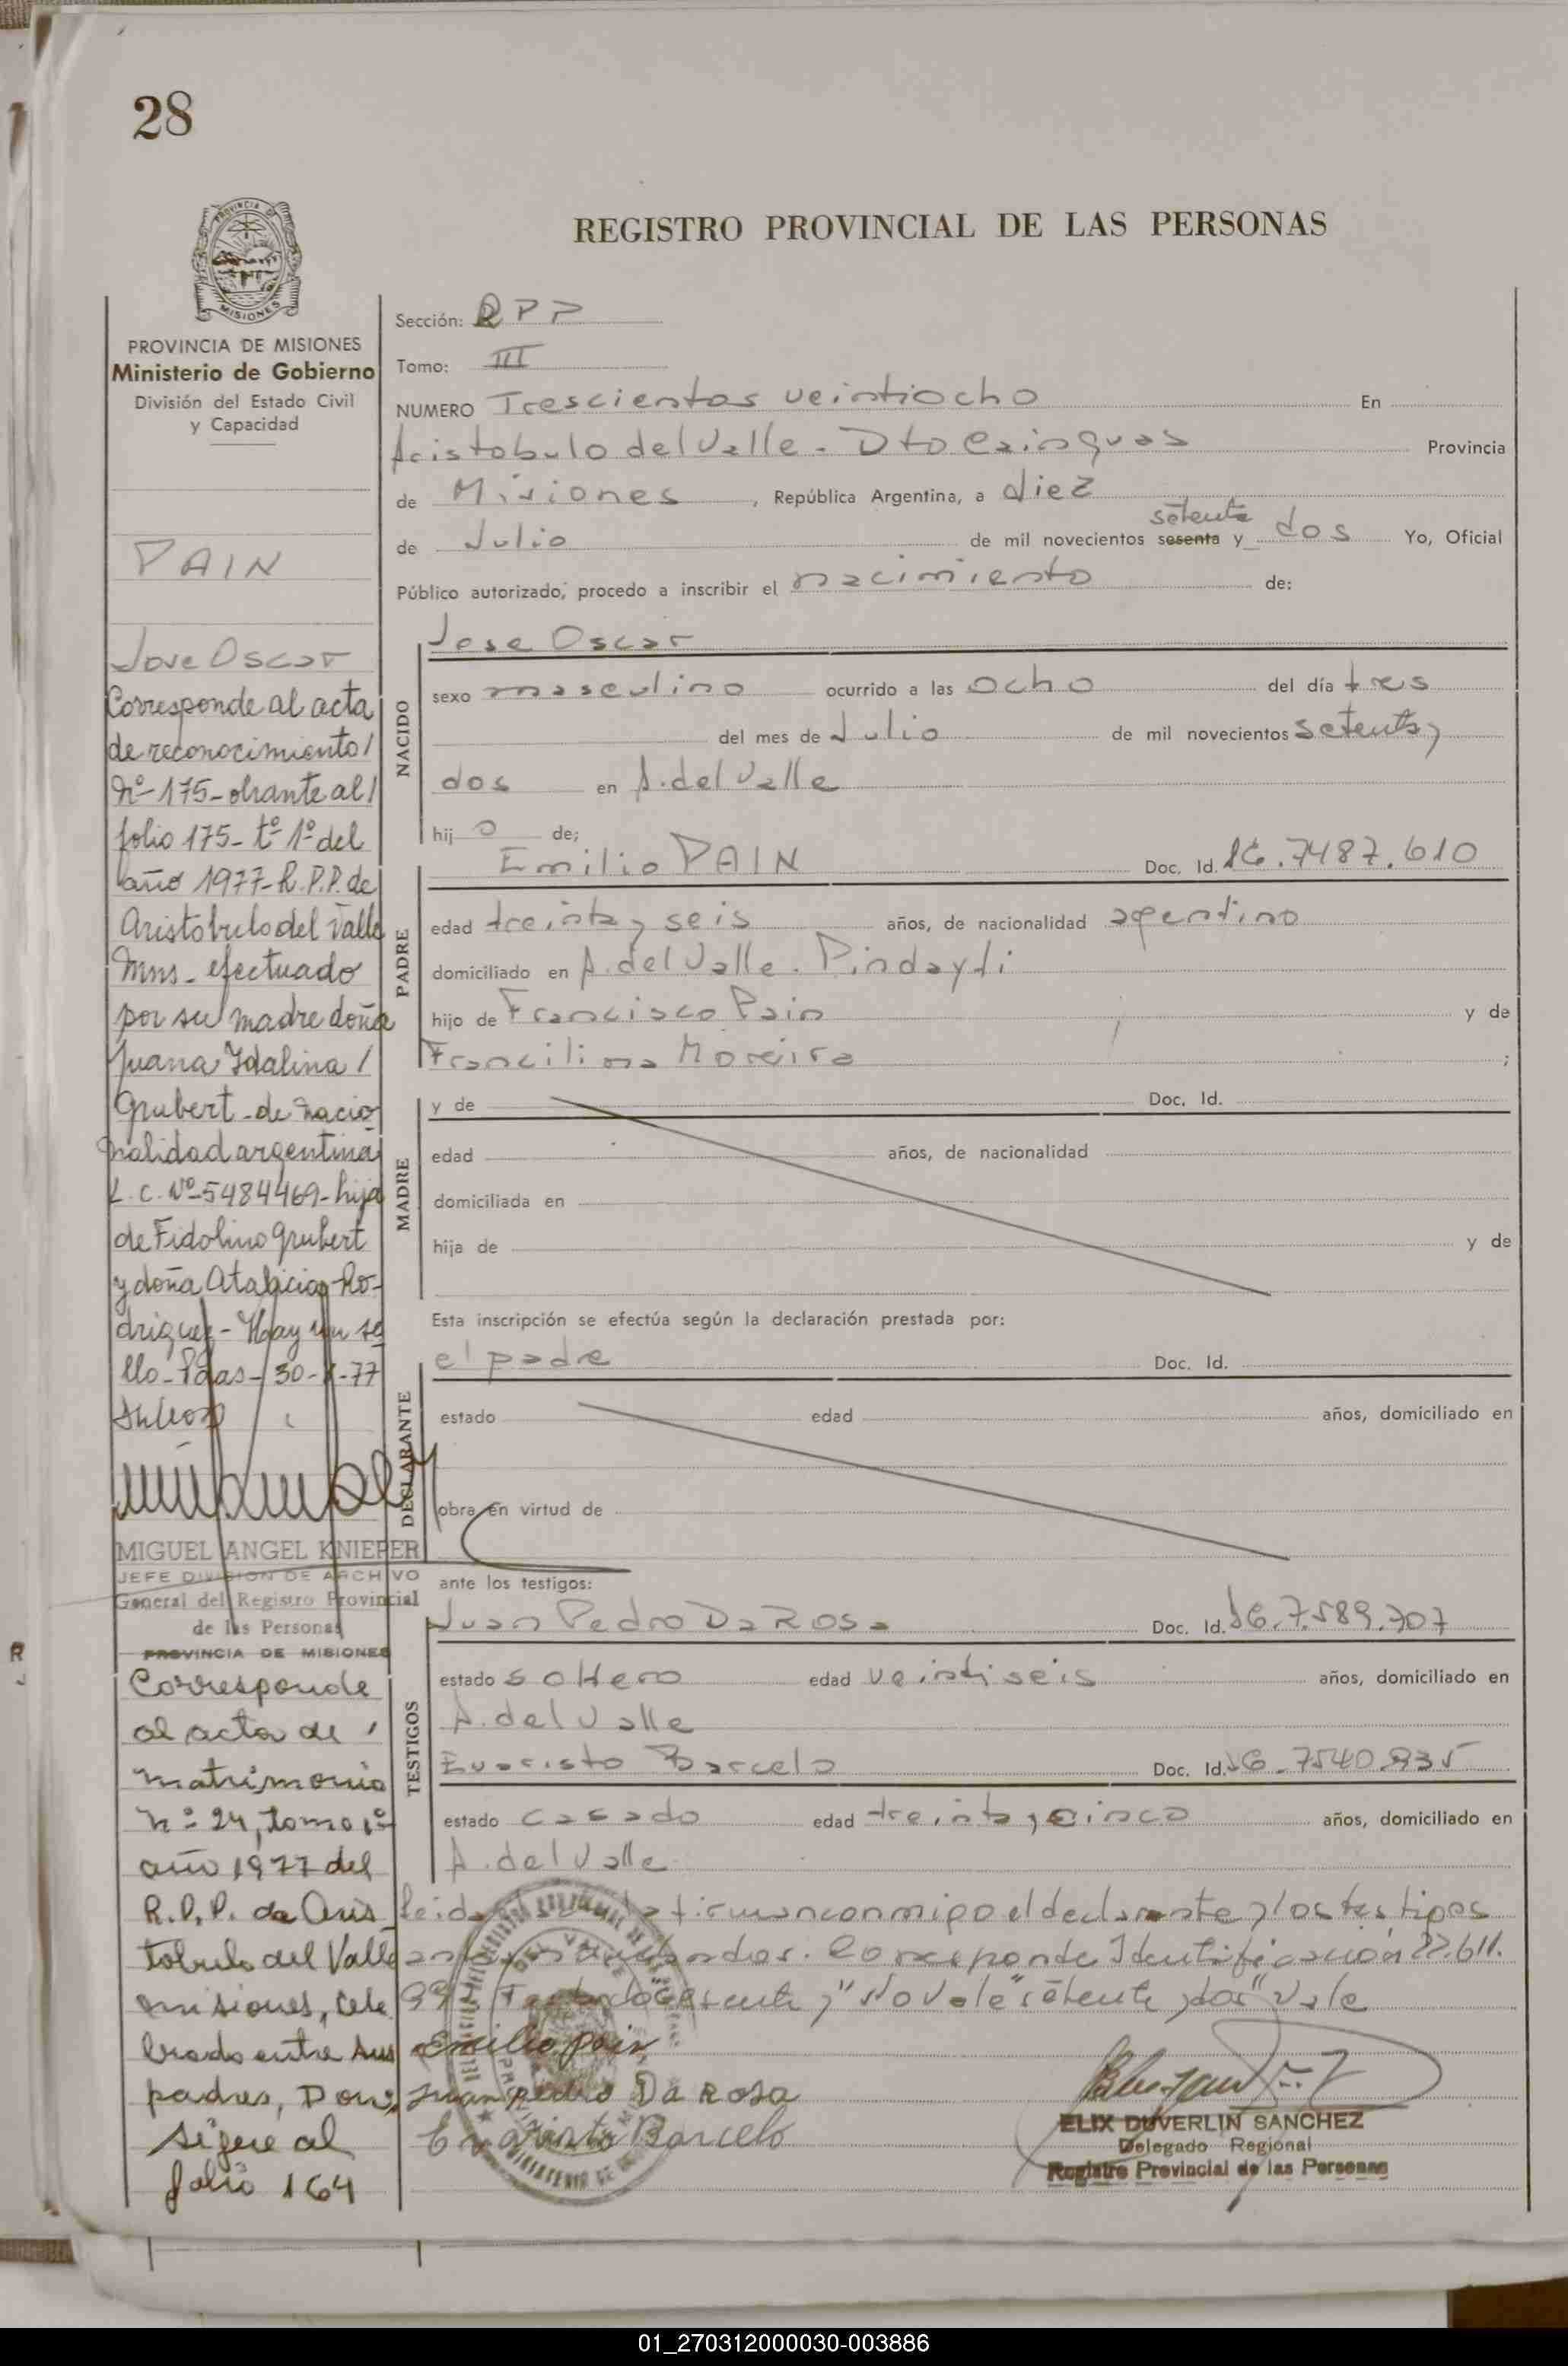 28
REGISTRO PROVINCIAL DE LAS PERSONAS
PROVINCIA DE
MISIONES
PROVINCIA DE MISIONES
Ministerio de Gobierno
División del Estado Civil
y Capacidad
PAIN
Jose Oscar
Corresponde al acta
de reconocimiento/
Nº-175-obrante al/
folio 175-tº 1º del
año 1977-R.P.P. de
Aristobulo del Valle
Mns- efectuado
por su madre doña
Juana Idalina/
Grubert-de nacio
nalidad argentina
L.C. Nº-5484469-hija
de Fidolino Grubert
y doña Atalicia Ro-
driguez-Hay un se
llo-Pdas-30- -77
MIGUEL ANGEL KNIEPER
JEFE DIVISION DE ARCHIVO
General del Registro Provincial
de las Personas
PROVINCIA DE MISIONES
Corresponde
al acta de /
matrimonio
Nº 24, tomo 1º
año 1977 del
R.P.P. de Aris
tobulo del Valle
misiones, cele
brado entre sus
padres, Don,
sigue al
folio 164
Sección: RPP
Tomo: III
NUMERO Trescientos veintiocho En
Aristobulo del Valle. Dto Cainguas Provincia
de Misiones, República Argentina, a diez
setenta
de Julio de mil novecientos sesenta y dos Yo, Oficial
Público autorizado, procedo a inscribir el nacimiento de:
NACIDO
Jose Oscar
sexo masculino ocurrido a las ocho del día tres
del mes de Julio de mil novecientos setenta y
dos en A. del Valle
hijo de;
PADRE
Emilio PAIN Doc. Id. I6.7487.610
edad treinta y seis años, de nacionalidad agentino
domiciliado en A. del Valle. Pindayti
hijo de Francisco Pain y de
Francilina Moreira ;
MADRE
y de Doc. Id.
edad años, de nacionalidad
domiciliada en
hija de y de
Esta inscripción se efectúa según la declaración prestada por:
DECLARANTE
el padre Doc. Id.
estado edad años, domiciliado en
obra en virtud de
ante los testigos:
TESTIGOS
Juan Pedro Da Rosa Doc. Id. I6.7.589.707
estado soltero edad veintiseis años, domiciliado en
A. del Valle
Evaristo Barcelo Doc. Id. I6-7540.935
estado casado edad treinta y cinco años, domiciliado en
A. del Valle
Leida firman conmigo el declarante y los testigos
Corresponde Identificacion 22.611.
99 sesenta y "No vale" setenta y dos" Vale
Emilio Pain
Juan Pedro Da Rosa
Evaristo Barcelo
ELIX DUVERLIN SANCHEZ
Delegado Regional
Registro Provincial de las Personas
R
01_270312000030-003886